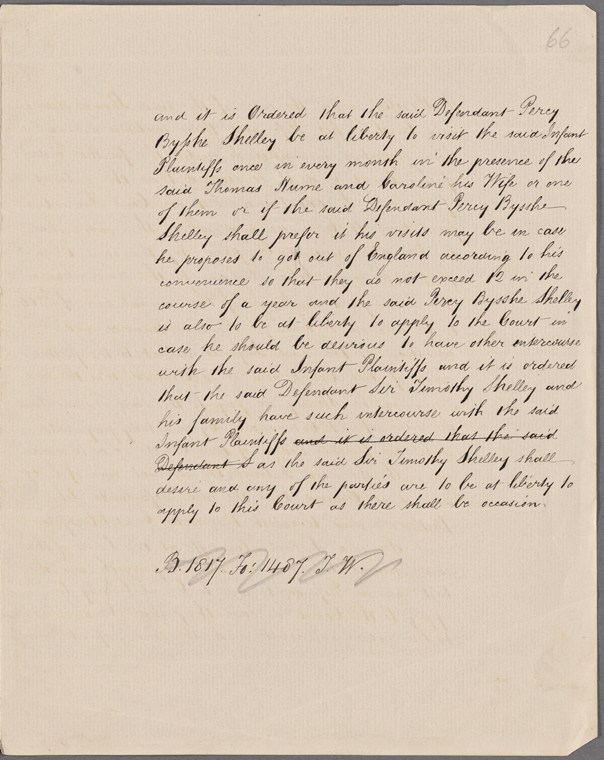 66
and it is Ordered that the said Defendant Percy
Bysshe Shelley be at liberty to visit the said Infant
Plaintiffs once in every month in the presence of the
said Thomas Hume and Caroline his Wife or one
of them or if the said Defendant Percy Bysshe
Shelley shall prefer it his visits may be in case
he proposes to got out of England according to his
convenience so that they do not exceed 12 in the
course of a year and the said Percy Bysshe Shelley
is also to be at liberty to apply to the Court in
case he should be desirous to have other intercourse
with the said Infant Plaintiffs and it is ordered
that the said Defendant Sir Timothy Shelley and
his family have such intercourse with the said
Infant Plaintiffs and it is ordered that the said
Defendant S as the said Sir Timothy Shelley shall
desire and any of the parties are to be at liberty to
apply to this Court as there shall be occasion.
B. 1817. Fo: 1487. T. W.